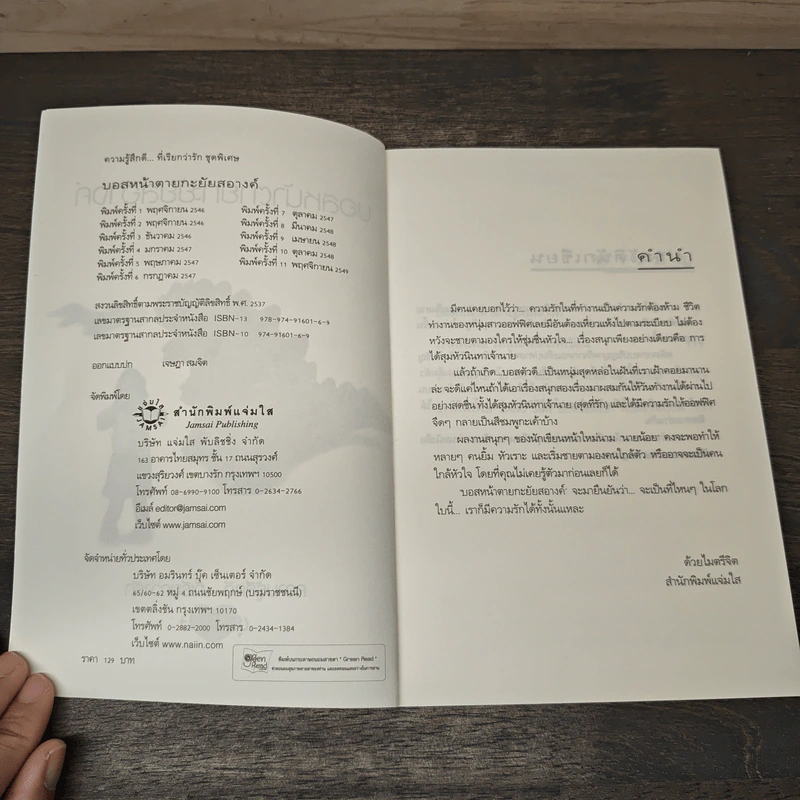 ความรู้สึกดี... ที่เรียกว่ารัก ชุดพิเศษ
บอสหน้าตายกะยัยสอางค์
พิมพ์ครั้งที่ 1 พฤศจิกายน 2546
พิมพ์ครั้งที่ 2 พฤศจิกายน 2546
พิมพ์ครั้งที่ 3 ธันวาคม 2546
พิมพ์ครั้งที่ 4 มกราคม 2547
พิมพ์ครั้งที่ 5 พฤษภาคม 2547
พิมพ์ครั้งที่ 6 กรกฎาคม 2547
พิมพ์ครั้งที่ 7 ตุลาคม 2547
พิมพ์ครั้งที่ 8 มีนาคม 2548
พิมพ์ครั้งที่ 9 เมษายน 2548
พิมพ์ครั้งที่ 10 ตุลาคม 2548
พิมพ์ครั้งที่ 11 พฤศจิกายน 2549
สงวนลิขสิทธิ์ตามพระราชบัญญัติลิขสิทธิ์ พ.ศ. 2537
เลขมาตรฐานสากลประจำหนังสือ ISBN-13 978-974-91601-6-9
เลขมาตรฐานสากลประจำหนังสือ ISBN-10 974-91601-6-9
ออกแบบปก เจษฎา สมจิต
จัดพิมพ์โดย
สำนักพิมพ์แจ่มใส
Jamsai Publishing
บริษัท แจ่มใส พับลิชชิ่ง จำกัด
163 อาคารไทยสมุทร ชั้น 17 ถนนสุรวงศ์
แขวงสุริยวงศ์ เขตบางรัก กรุงเทพฯ 10500
โทรศัพท์ 08-6990-9100 โทรสาร 0-2634-2766
อีเมล์ editor@jamsai.com
เว็บไซต์ www.jamsai.com
จัดจำหน่ายทั่วประเทศโดย
บริษัท อมรินทร์ บุ๊ค เซ็นเตอร์ จำกัด
65/60-62 หมู่ 4 ถนนชัยพฤกษ์ (บรมราชชนนี)
เขตตลิ่งชัน กรุงเทพฯ 10170
โทรศัพท์ 0-2882-2000 โทรสาร 0-2434-1384
เว็บไซต์ www.naiin.com
ราคา 129 บาท
Green Read
พิมพ์บนกระดาษถนอมสายตา " Green Read "
คำนำ
มีคนเคยบอกไว้ว่า... ความรักในที่ทำงานเป็นความรักต้องห้าม ชีวิต
ทำงานของหนุ่มสาวออฟฟิศเลยมีอันต้องเหี่ยวแห้งไปตามระเบียบ ไม่ต้อง
หวังจะชายตามองใครให้ชุ่มชื่นหัวใจ... เรื่องสนุกเพียงอย่างเดียวคือ การ
ได้สุมหัวนินทาเจ้านาย
แล้วถ้าเกิด...บอสตัวดี...เป็นหนุ่มสุดหล่อในฝันที่เราเฝ้าคอยมานาน
ล่ะ จะดีแค่ไหนถ้าได้เอาเรื่องสนุกสองเรื่องมาผสมกันให้วันทำงานได้ผ่านไป
อย่างสดชื่น ทั้งได้สุมหัวนินทาเจ้านาย (สุดที่รัก) และได้มีความรักให้ออฟฟิศ
จืดๆ กลายเป็นสีชมพูกะเค้าบ้าง
ผลงานสนุกๆ ของนักเขียนหน้าใหม่นาม 'นายน้อย' คงจะพอทำให้
หลายๆ คนยิ้ม หัวเราะ และเริ่มชายตามองคนใกล้ตัว หรืออาจจะเป็นคน
ใกล้หัวใจ โดยที่คุณไม่เคยรู้ตัวมาก่อนเลยก็ได้
'บอสหน้าตายกะยัยสอางค์' จะมายืนยันว่า... จะเป็นที่ไหนๆ ในโลก
ใบนี้... เราก็มีความรักได้ทั้งนั้นแหละ
ด้วยไมตรีจิต
สำนักพิมพ์แจ่มใส